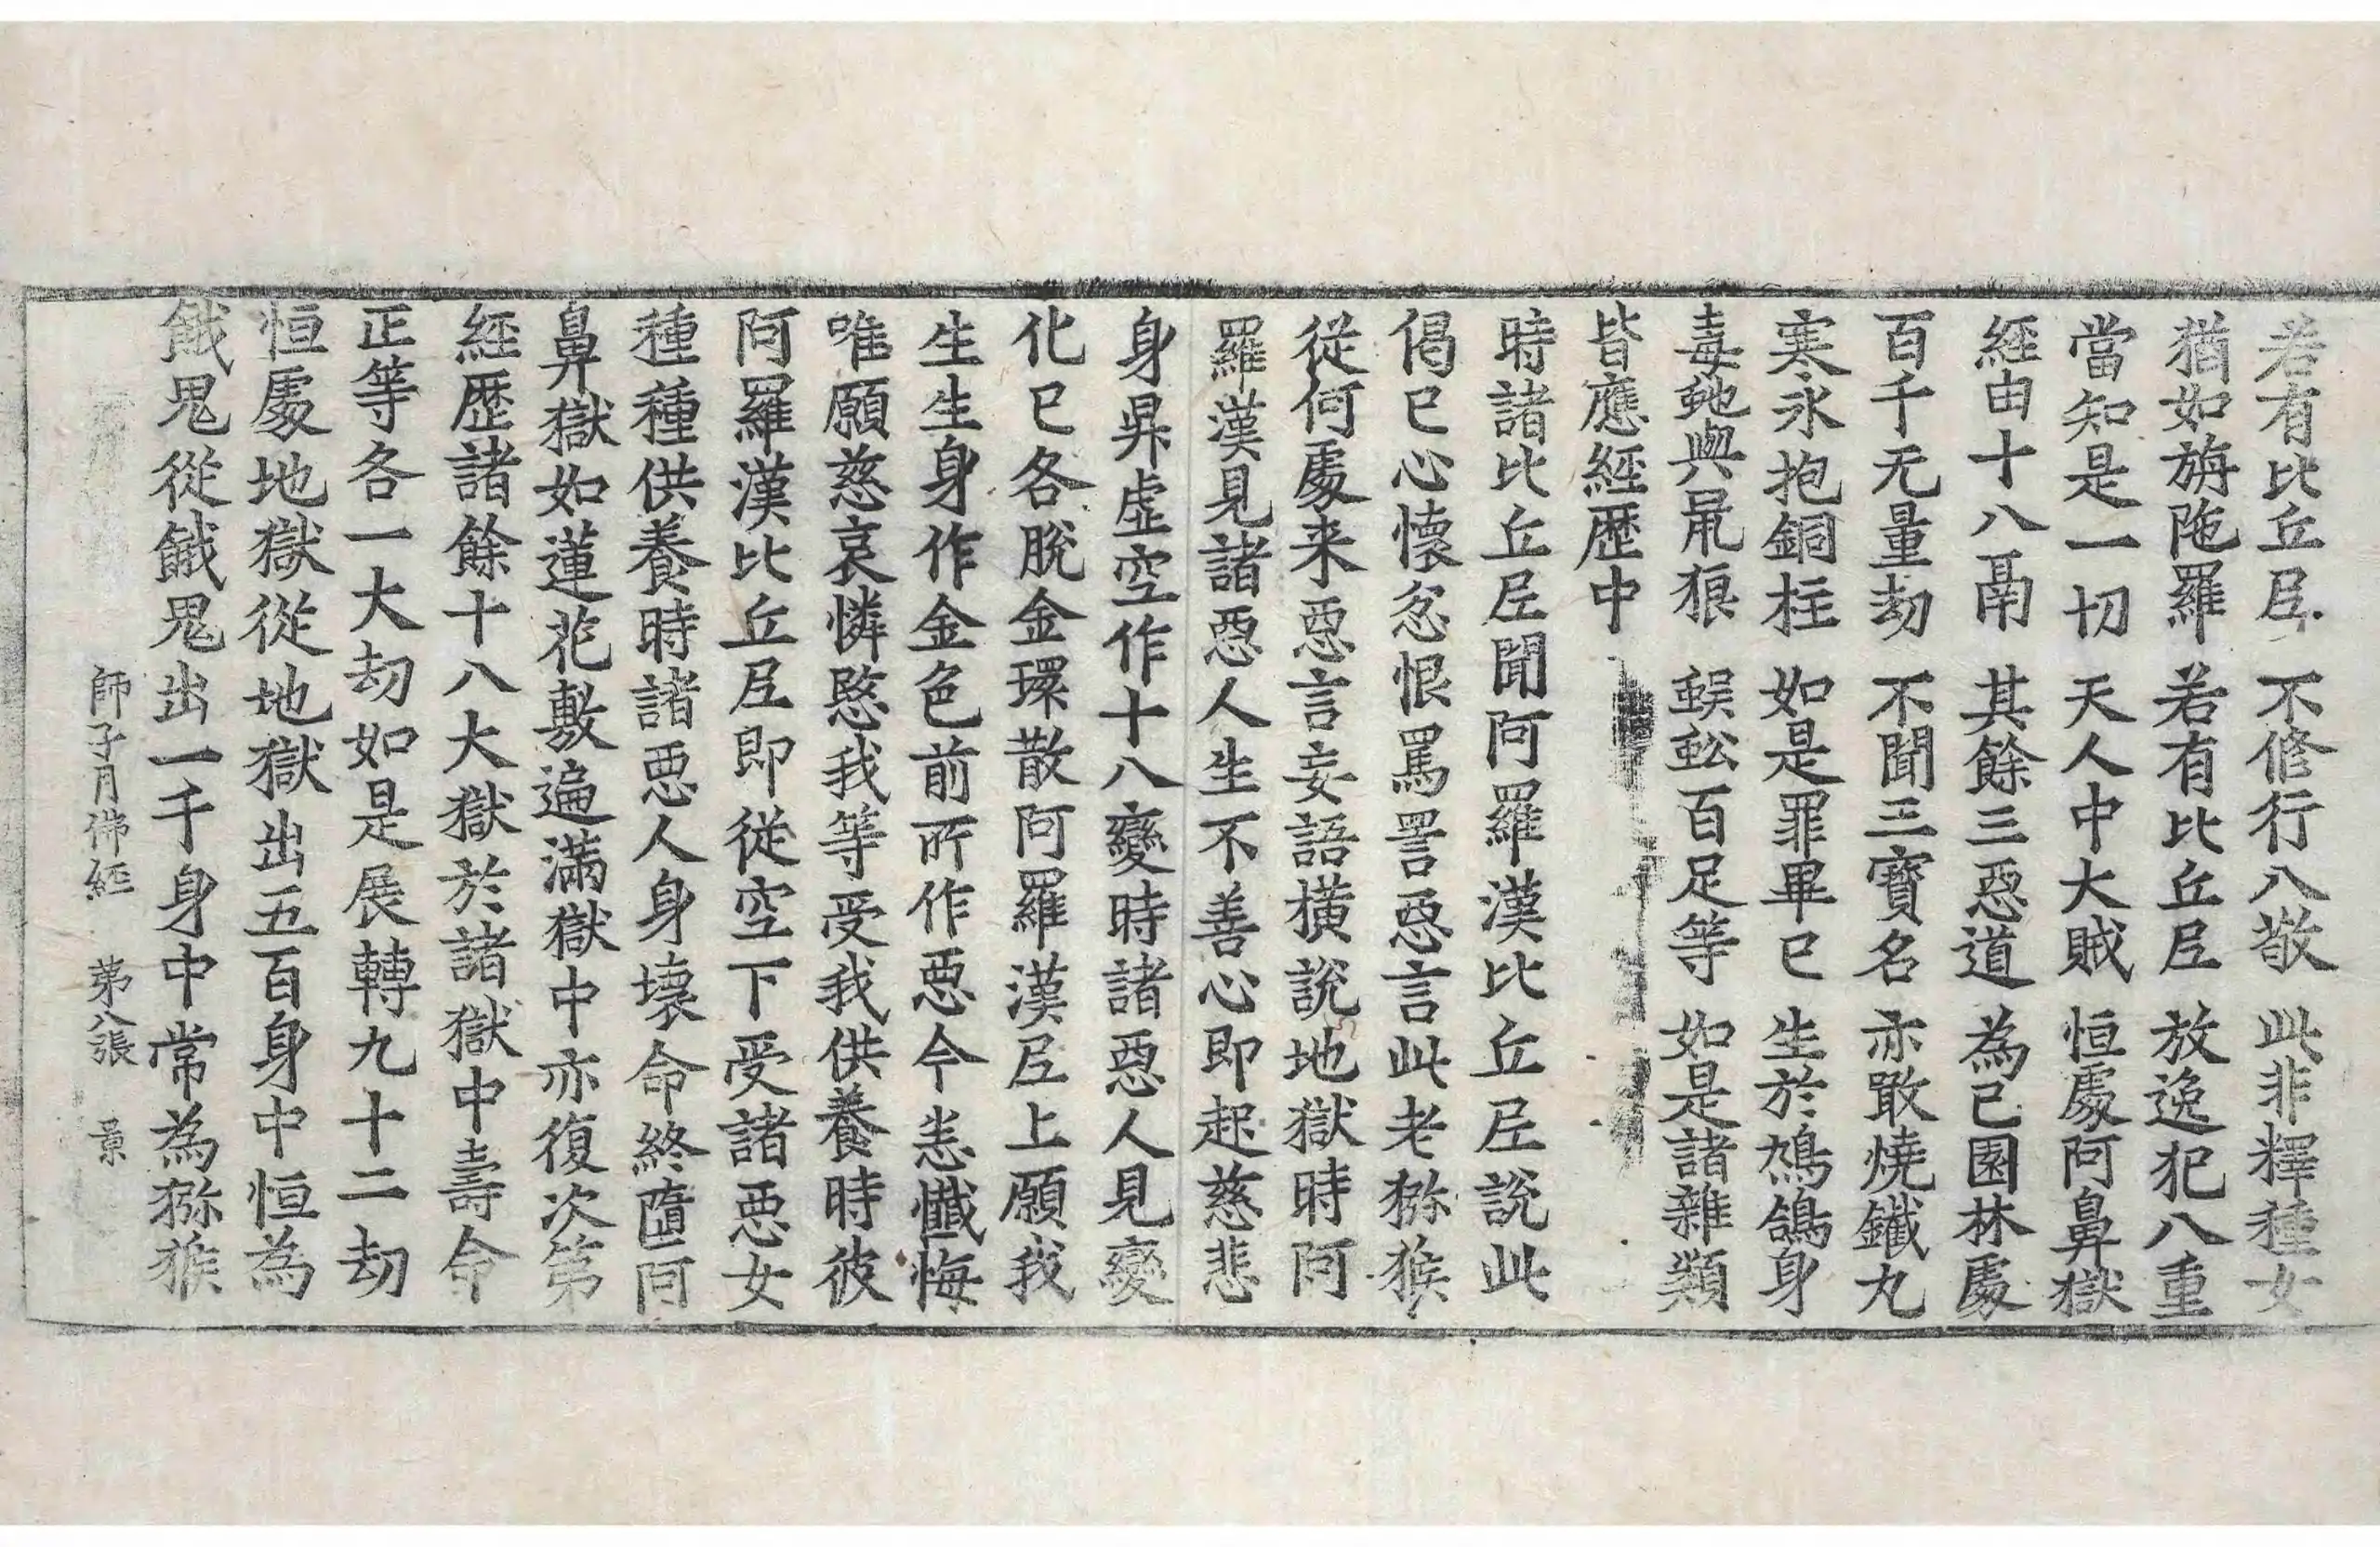 若有比丘尼 不修行八敬 此非釋種女
猶如旃陁羅 若有比丘尼 放逸犯八重
當知是一切 天人中大賊 恒處阿鼻獄
經由十八鬲 其餘三惡道 為己園林處
百千无量劫 不聞三寶名 亦噉燒鐵丸
寒氷抱銅柱 如是罪畢已 生於鳩鴿身
毒虵與䑕狼 蜈蚣百足等 如是諸雜類
皆應經歷中
時諸比丘尼聞阿羅漢比丘尼說此
偈已心懷忿恨罵詈惡言此老獼猴
從何處来惡言妄語橫說地獄時阿
羅漢見諸惡人生不善心即起慈悲
身昇虛空作十八變時諸惡人見變
化已各脫金環散阿羅漢尼上願我
生生身作金色前所作惡今恙懺悔
唯願慈哀憐愍我等受我供養時彼
阿羅漢比丘尼即從空下受諸惡女
種種供養時諸惡人身壞命終墮阿
鼻獄如蓮花敷遍滿獄中亦復次第
經歷諸餘十八大獄於諸獄中壽命
正等各一大劫如是展轉九十二劫
恒處地獄從地獄出五百身中恒為
餓鬼從餓鬼出一千身中常為獼猴
師子月佛經 第八張 景